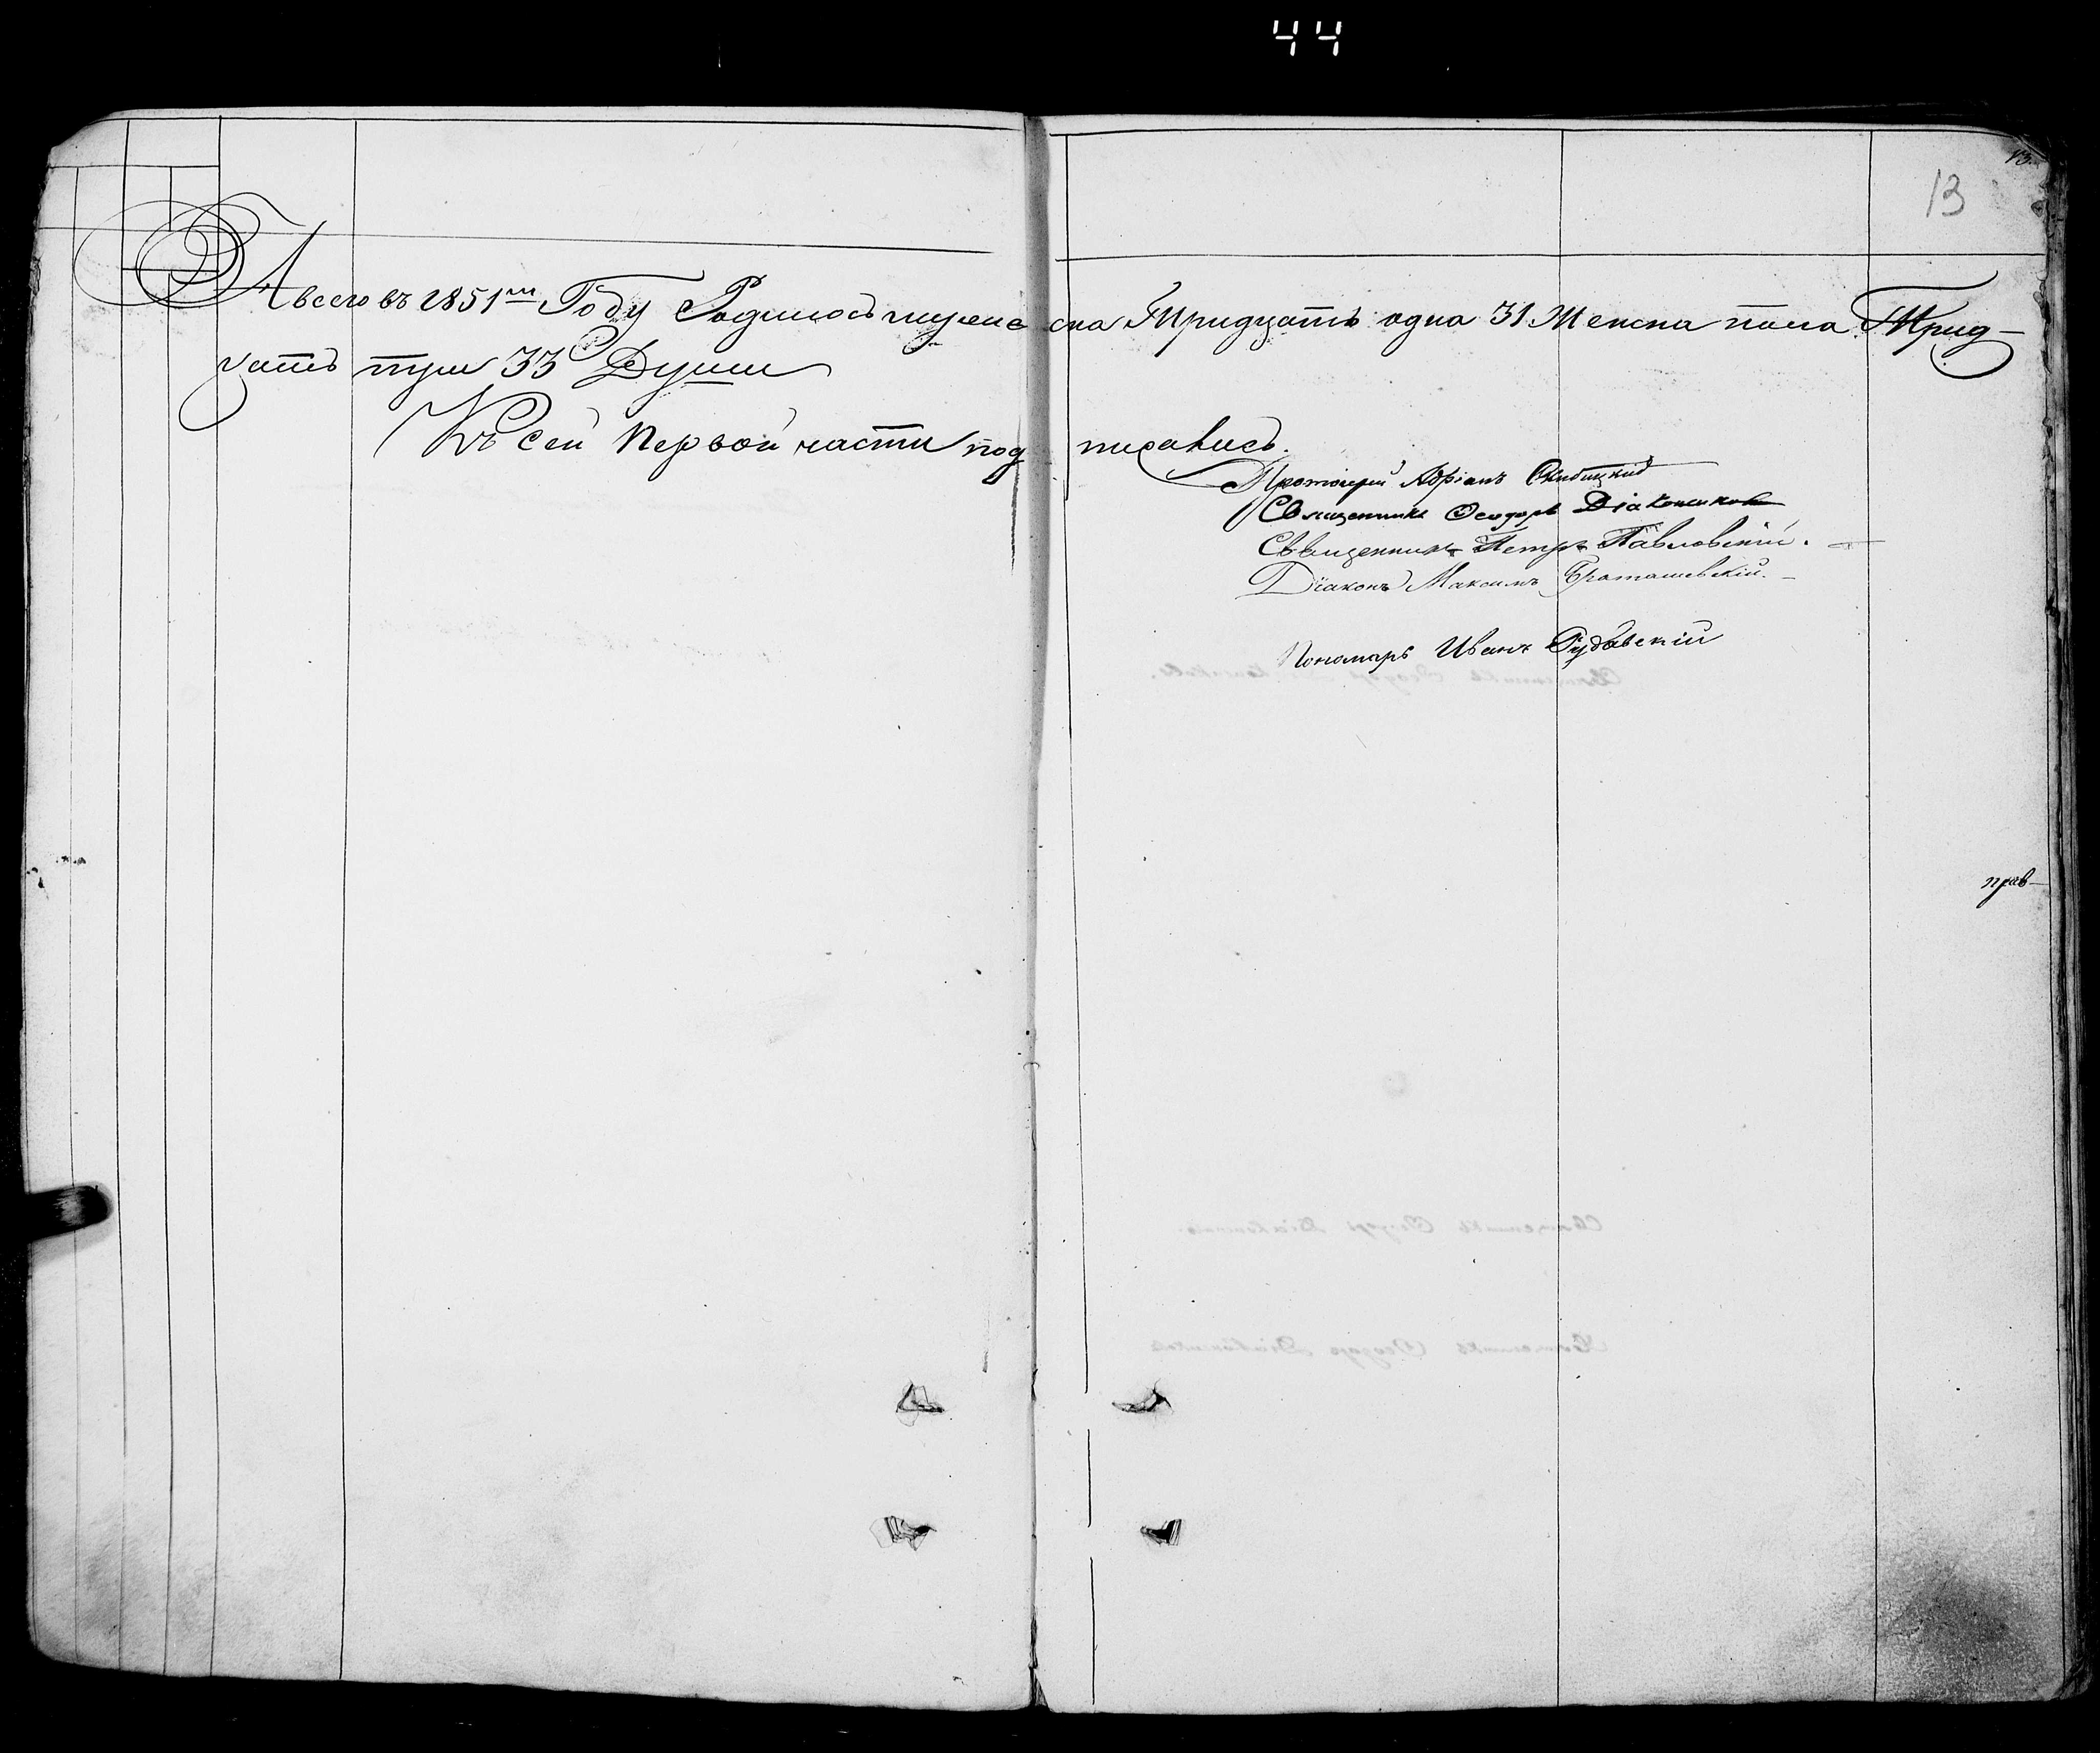 44
13
13
А всего въ 1851мъ Году Родилось мужеска Тридцать одна 31 Женска пола Трид-
цать три 33 Души
Къ сей Первой части подписались.
Протоіерей Адріанъ Скибицкій
Священникъ Ѳеодоръ Діакониковъ
Священникъ Петръ Павловскій.
Діаконъ Максимъ
Пономарь Иванъ